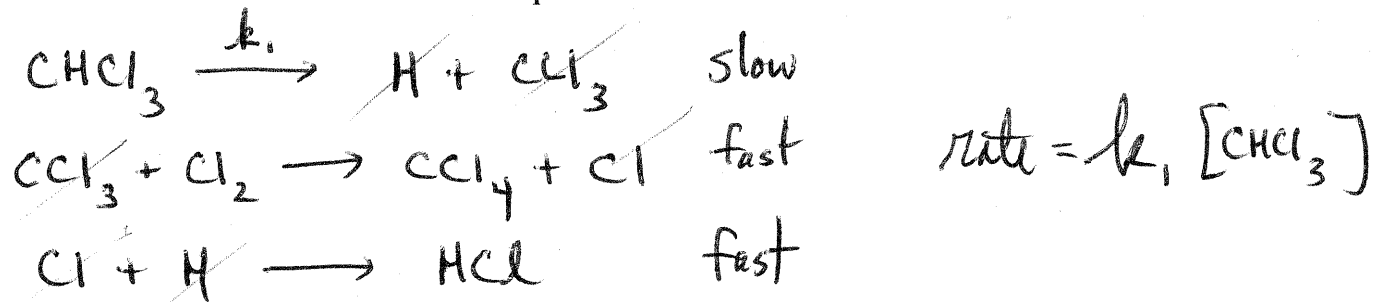 CHCl₃ —k₁→ H + CCl₃ slow
CCl₃ + Cl₂ → CCl₄ + Cl fast rate = k₁ [CHCl₃]
Cl + H → HCl fast